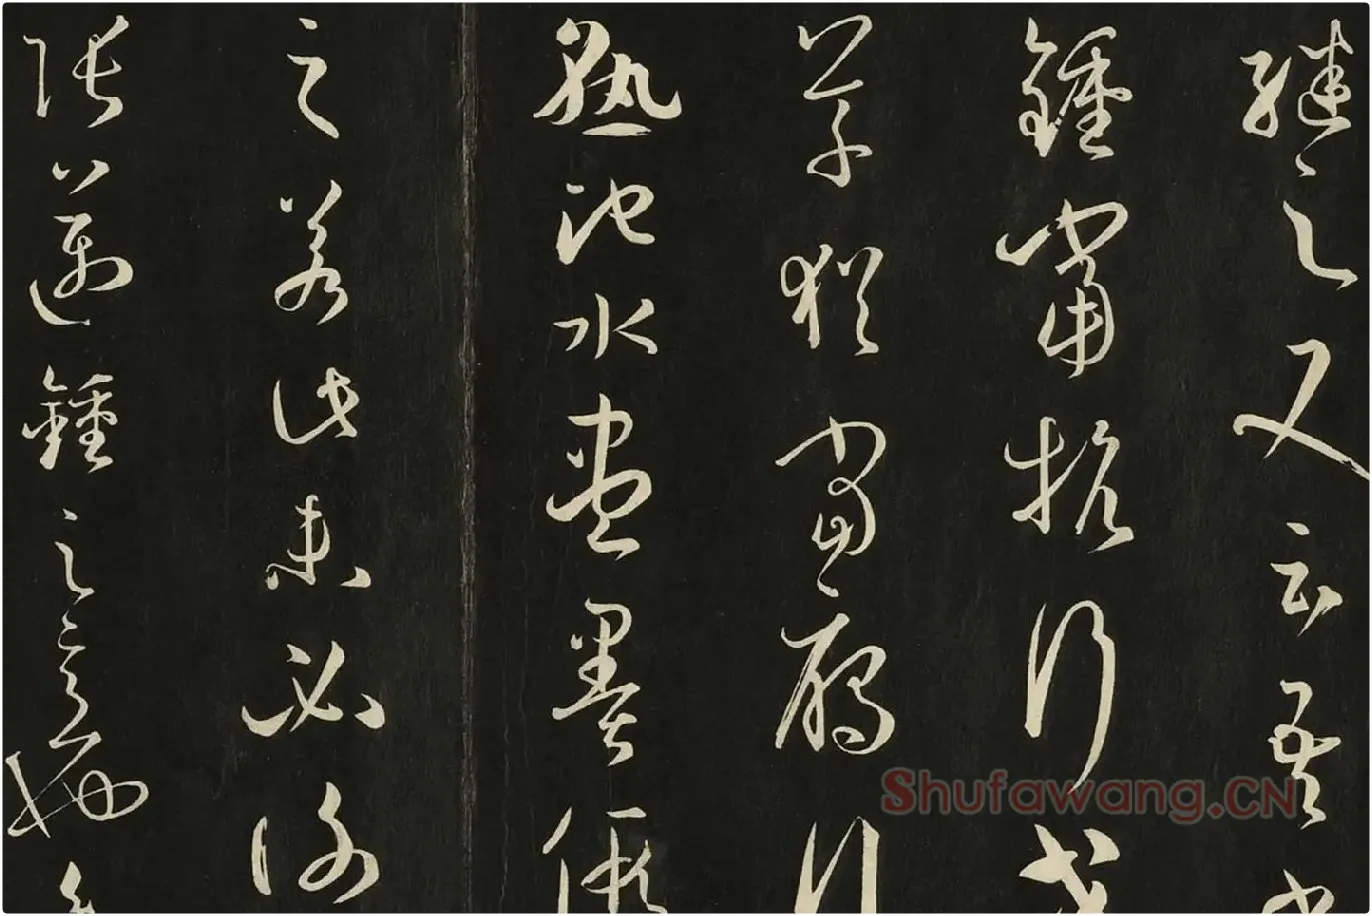 繼之又云吾書
鍾當抗行或
草猶當鴈行
熟池水盡墨假
之若此未必謝
張邁鍾之意也
Shufawang.CN